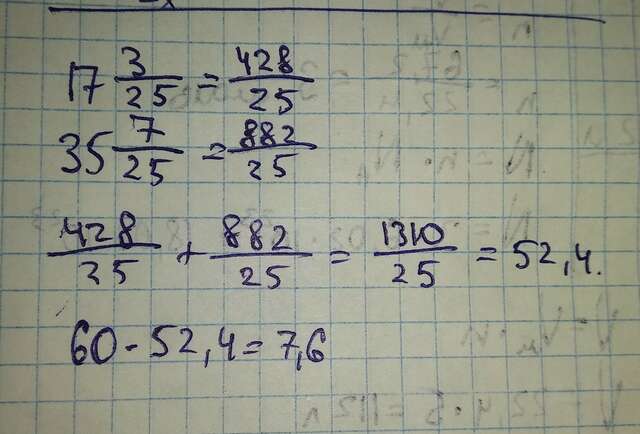 17 3/25 = 428/25
35 7/25 = 882/25
428/25 + 882/25 = 1310/25 = 52,4.
60 - 52,4 = 7,6